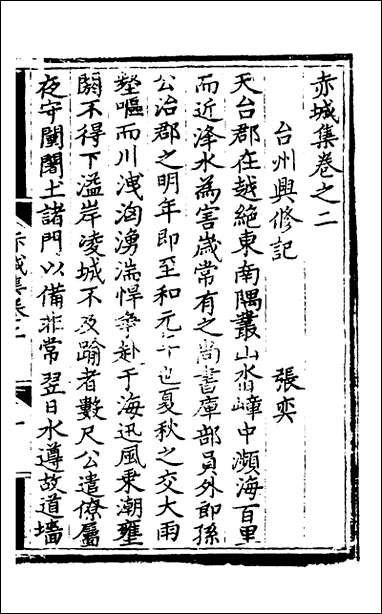 赤城集卷之二
台州興修記 張奕
天台郡在越絕東南隅叢山沓嶂中瀕海百里
而近洚水為害歲常有之尚書庫部員外郎孫
公治郡之明年即至和元年也夏秋之交大雨
壑嘔而川洩洶湧湍悍爭赴于海迅風乘潮壅
閼不得下溢岸凌城不及踰者數尺公遣僚屬
夜守闉闍土諸門以備非常翌日水導故道墻
赤城集卷二